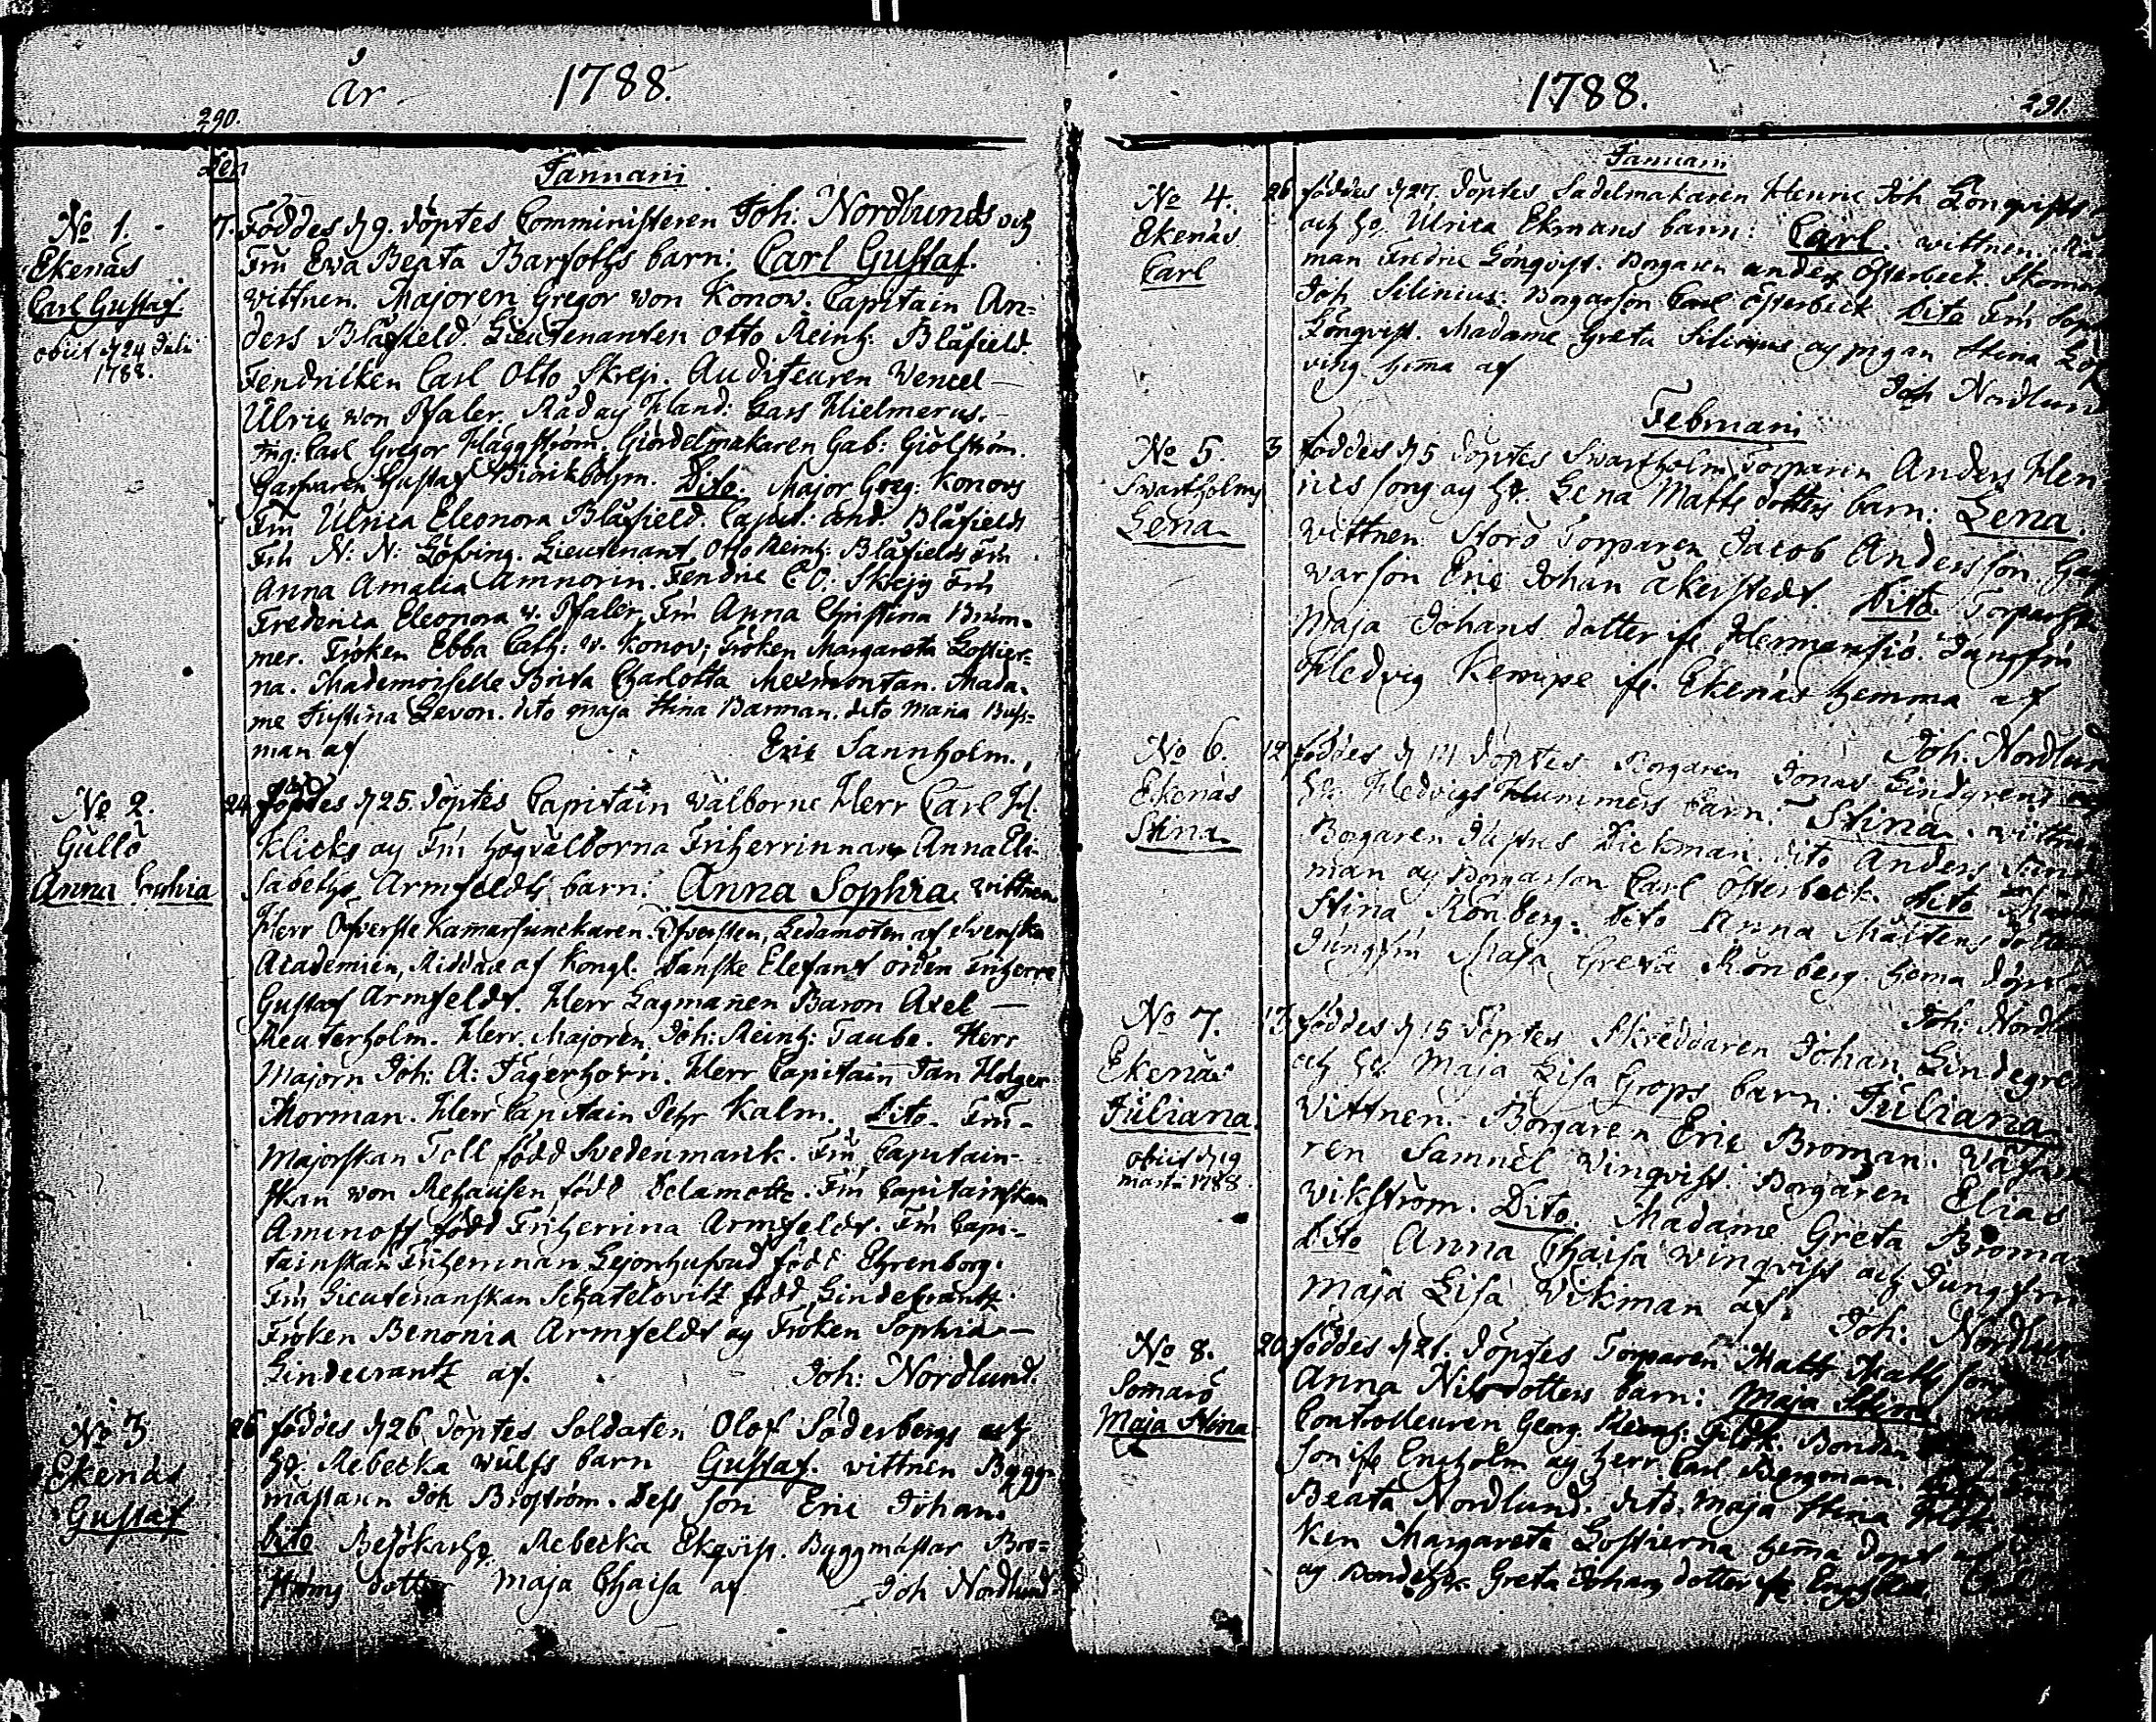 år 1788.
290.
den
Januarii
No 1.
Ekenäs
Carl Gustaf.
obiit d 24 Julii
1788.
7. Föddes d 9. döptes Comministeren Joh: Nordlunds och
Fru Eva Beata Barfoths barn: Carl Gustaf.
vittnen. Majoren Gregor von Konow. Capitain An-
ders Blåfield. Lieutenanten Otto Reinh: Blåfield.
Fendricken Carl Otto Skep. Auditeuren Wencel
Ulric von Pfaler. Råd och Hand: Lars Hielmerus.
Carl Gregor Häggström. Giördelmakaren Gab: Giölström.
Garfvaren Gustaf Biörckbohm. Dito. Major Greg: Konows
Fru Ulrica Eleonora Blåfield. Capit: And: Blåfields
Fru N: N: Löfving. Lieutenant Otto Reinh: Blåfields Fru
Anna Amalia Amnorin. Fendric C. O: Fru
Frederica Eleonora v. Pfaler, Fru Anna Christina Brum-
mer. Fröken Ebba Cath: v. Konow, Fröken Margareta Lostier-
na. Mademoiselle Brita Charlotta Mexmontan. Mada-
me Justina Levon. dito Maja Stina Barman. dito Maria Buss-
man af Eric Sannholm.
No 2.
Gullö
Anna Sophia
24. föddes d 25. döptes Capitain Välborne Herr Carl H.
Klicks och Fru högvälborna Friherrinnan Anna Eli-
sabeths Armfeldts barn: Anna Sophia. vittnen.
Herr Öfverste Kamarjunckaren. Öfversten, Ledamoten af Svenska
Academien, Riddare af Kongl. Danske Elefant orden Friherre
Gustaf Armfeldt. Herr Lagmanen Baron Axel
Reuterholm. Herr Majoren Joh: Reinh: Taube. Herr
Majorn Joh: A: Jägerhorn. Herr Capitain Jan Holger
Thorman. Herr Capitain Pehr Kalm. Dito. Fru
Majorskan Toll född Svedenmarck. Fru Capitain-
skan von Rehausen född Delamotte. Fru Capitainskan
Aminoff född Friherrina Armfeldt. Fru Capi-
tainskan Friherrinan Lejonhufvud född Ehrenborg.
Fru Lieutenanskan Schatelovitz född Lindecrantz.
Fröken Benonia Armfeldt och Fröken Sophia
Lindecrantz af. Joh: Nordlund.
No 3.
Ekenäs
Gustaf
26 föddes d 26 döptes Soldaten Olof Söderbergs och
hu. Rebecka Wulfs barn Gustaf. vittnen Bygg
mästaren Joh Broström. Dess son Eric Johan.
Dito Besökarhu. Rebecka Ekqvist. Byggmästar Bro-
ströms dotter Maja Chaisa af Joh Nordlund
1788.
291.
Januarii
No 4.
Ekenäs
Carl
26 föddes d 27. döptes Sadelmakaren Henric Joh Lönqvists
och hu. Ulrica Ekmans barn: Carl. vittnen.
man Fredric Lönqvist. Borgaren Anders Österbeck.
Joh Silinius. Borgarson Carl Österbeck. Dito Fru
Lönqvist. Madame Greta Silinius och pigan Stina
hema af
Joh Nordlund
Februarii
No 5.
Svartholm
Lena
3 föddes d 5 döptes Svartholm Torparen Anders Hen
rics sons och hu. Lena Matts dotters barn: Lena.
vittnen. Storö Torparen Jacob Andersson.
varson Eric Johan Åkerstedt. Dito.
Maja Johans dotter fr. Hermansö. Jungfru
Hedvig Kempe fr. Ekenäs hemma af
Joh: Nordlund
No 6.
Ekenäs
Stina
12 föddes d 14 döptes Borgaren Jonas Lindgrens
hu. Hedvigs Hummers barn: Stina. vittnen
Borgaren Justus Diekman. dito Anders
man och Borgarson Carl Österbeck. Dito
Stina Rönberg. Dito Anna Mårtens dotter
Jungfru Maja Greta Rönberg. hema döpt
Joh: Nordl
No 7.
Ekenäs
Juliana.
obiit d 19
Martii 1788.
13 föddes d 15 döptes Skräddaren Johan Lindegre
och hu. Maja Lisa Grops barn: Juliana.
Vittnen. Borgaren Eric Broman.
ren Samuel Vinqvist. Borgaren Elias
Vikström. Dito. Madame Greta Broman
dito Anna Chaisa Winqvist och Jungfru
Maja Lisa Vikman af.
Joh: Nordlun
No 8.
Somarö
Maja Stina
20 föddes d 21. döptes Torparen Matts Matts sons
Anna Nilsdotters barn: Maja Stina
Controlleuren Georg Reinh: Bonden
son fr Engholm och herr Carl Bergman.
Beata Nordlund. dito. Maja Stina
ken Margareta Lostierna hema döpt
och Bondehu. Greta Johans dotter fr.